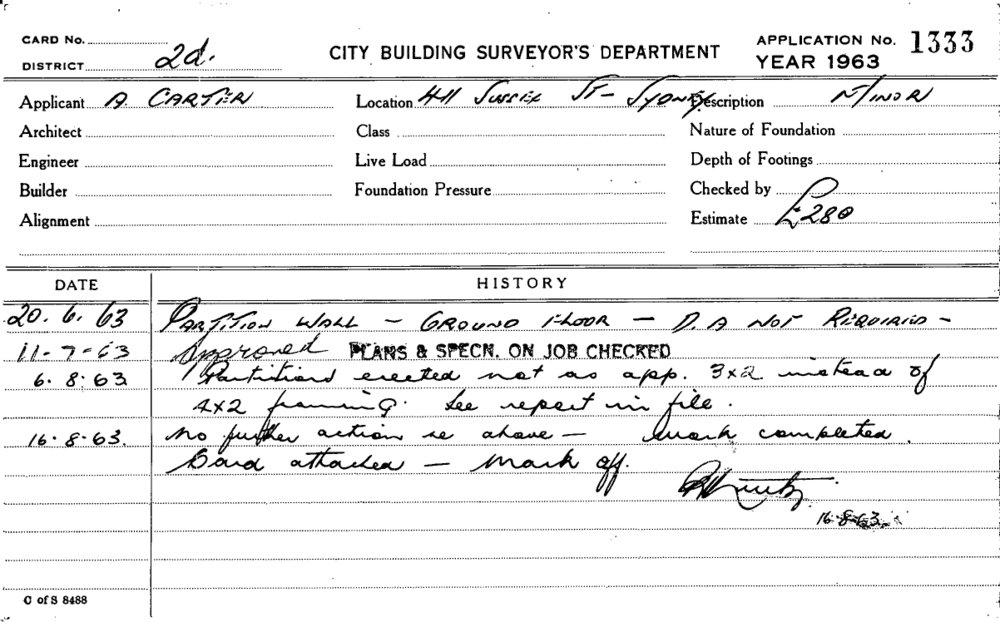 CARD No.
DISTRICT 2d.
CITY BUILDING SURVEYOR'S DEPARTMENT
APPLICATION No. 1333
YEAR 1963
Applicant A CARTER
Location 411 SUSSEX ST - SYDNEY
Description MINOR
Architect
Class
Nature of Foundation
Engineer
Live Load
Depth of Footings
Builder
Foundation Pressure
Checked by
Alignment
Estimate £280
DATE HISTORY
20. 6. 63 PARTITION WALL - GROUND FLOOR - D.A NOT REQUIRED -
11-7-63 Approved PLANS & SPECN. ON JOB CHECKED
6. 8. 63 Partitions erected not as app. 3x2 instead of
4x2 framing. See report in file.
16. 8. 63. No further action re above - work completed.
Card attached - Mark off.
16.8.63
C of S 8488